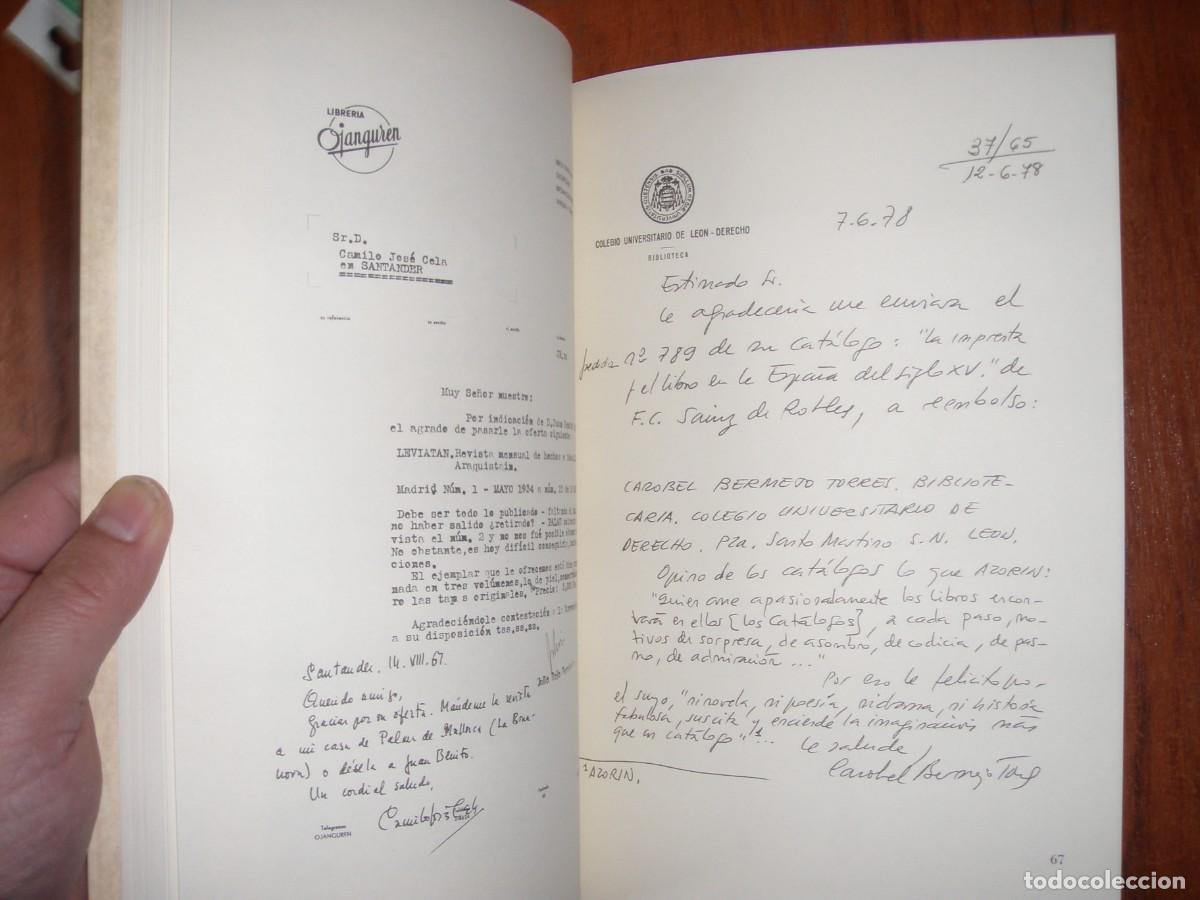 LIBRERIA
Ojanguren
Sr.D.
Camilo José Cela
en SANTANDER
su referencia
su escrito
Muy Señor nuestro:
Por indicación de D.Juan
el agrado de pasarle la oferta siguiente
LEVIATAN.Revista mensual de hechos e
Araquistain.
Madrid, Núm. 1 - MAYO 1934 a núm.
Debe ser todo lo publicado - faltando el
no haber salido ¿retirado? - PALAU
vista el núm. 2 y no nos fué posible
No obstante, es hoy difícil conseguir
ciones.
El ejemplar que le ofrecemos está
mada en tres volúmenes, lo de piel,
re las tapas originales. Precio:
Agradeciéndole contestación
a su disposición tss.ss.ss.
Santander, 14.VIII.67.
Querido amigo,
Gracias por su oferta. Mándeme la revista
a mi casa de Palma de Mallorca (La Bona-
nova) o désela a Juan Benito.
Un cordial saludo,
Telegramas
OJANGUREN
37/65
12-6-78
COLEGIO UNIVERSITARIO DE LEON - DERECHO
BIBLIOTECA
7.6.78
Estimado Sr.
Le agradecería me enviara el
nº 789 de su catálogo: "La imprenta
y el libro en la España del siglo XV." de
F.C. Sainz de Robles, a reembolso:
CAROBEL BERMEJO TORRES. BIBLIOTE-
CARIA. COLEGIO UNIVERSITARIO DE
DERECHO. Pza. Santo Martino S.N. LEON.
Opino de los catálogos lo que AZORIN:
"Quien ame apasionadamente los libros encon-
trará en ellos [los catálogos], a cada paso, mo-
tivos de sorpresa, de asombro, de codicia, de pas-
mo, de admiración ..."
Por eso le felicito por
el suyo, "ni novela, ni poesía, ni drama, ni historia
fabulosa, suscita y enciende la imaginación más
que un catálogo"¹...
Le saluda,
Carobel Bermejo Torres
¹ AZORIN,
67
todocoleccion